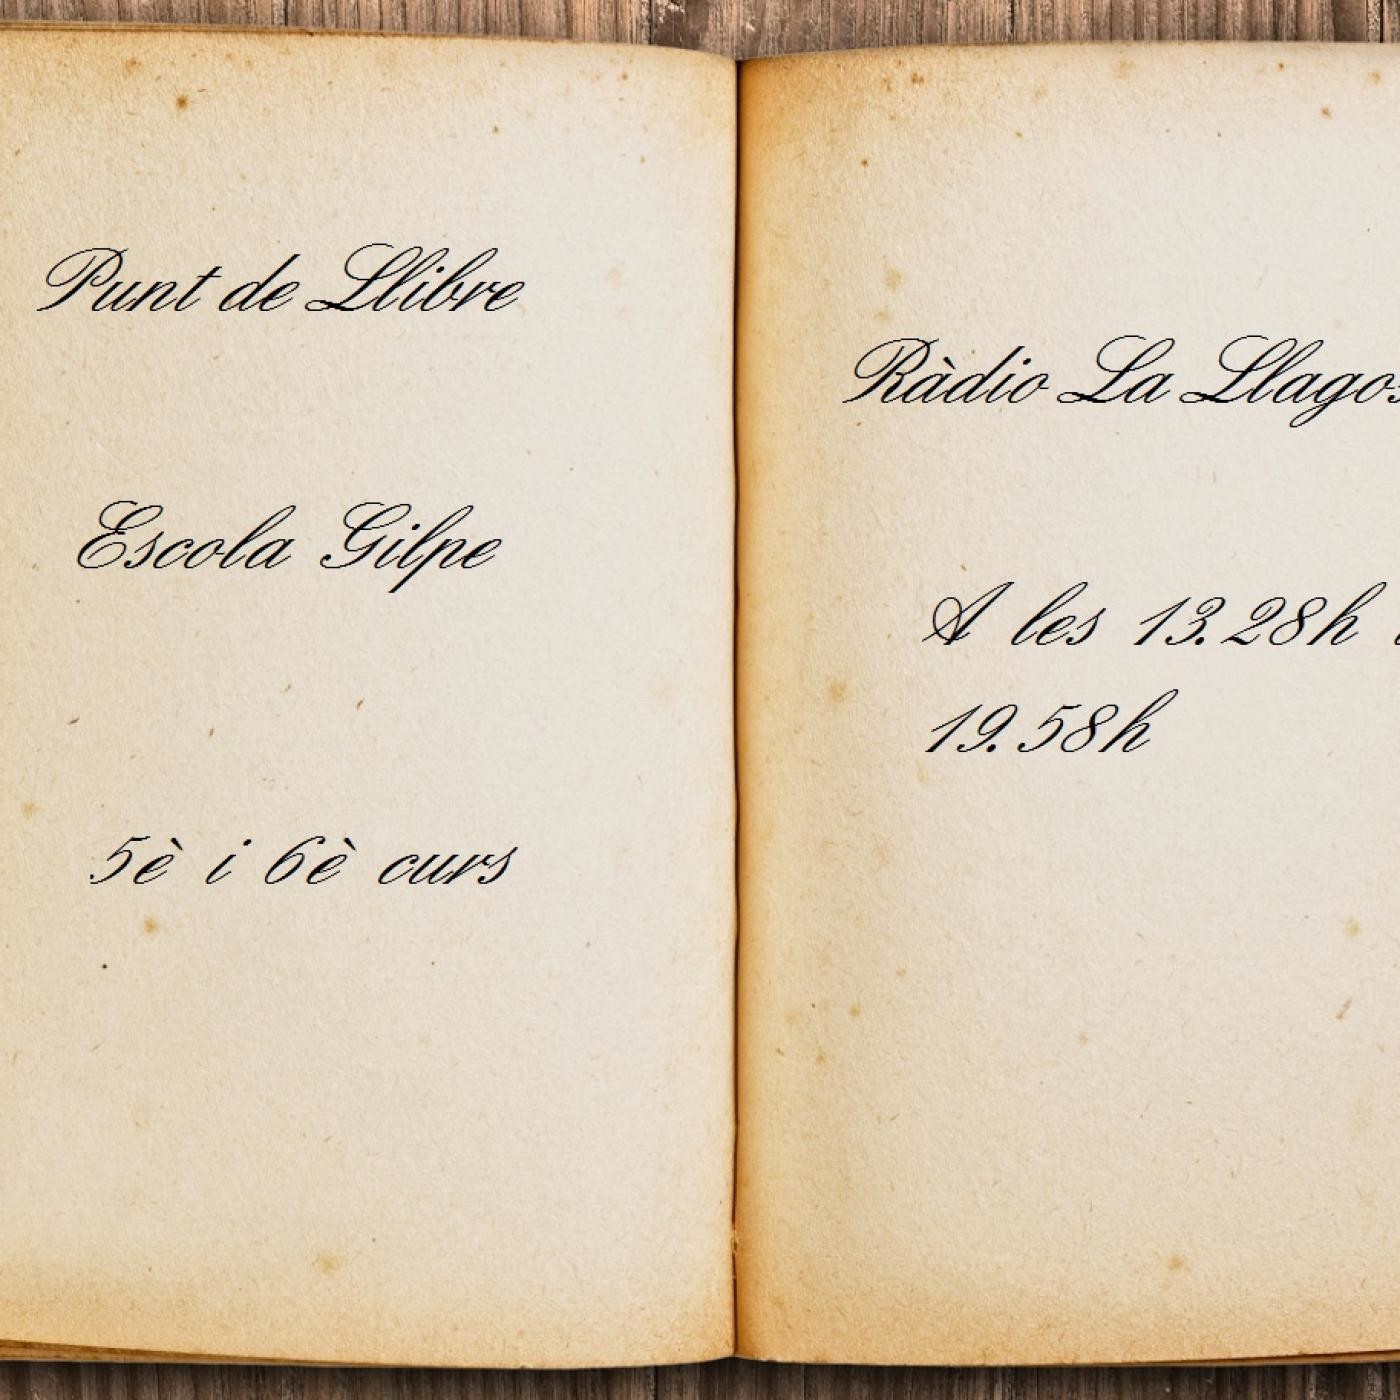 Punt de Llibre
Escola Gilpe
5è i 6è curs
Ràdio La Llagos
A les 13.28h
19.58h